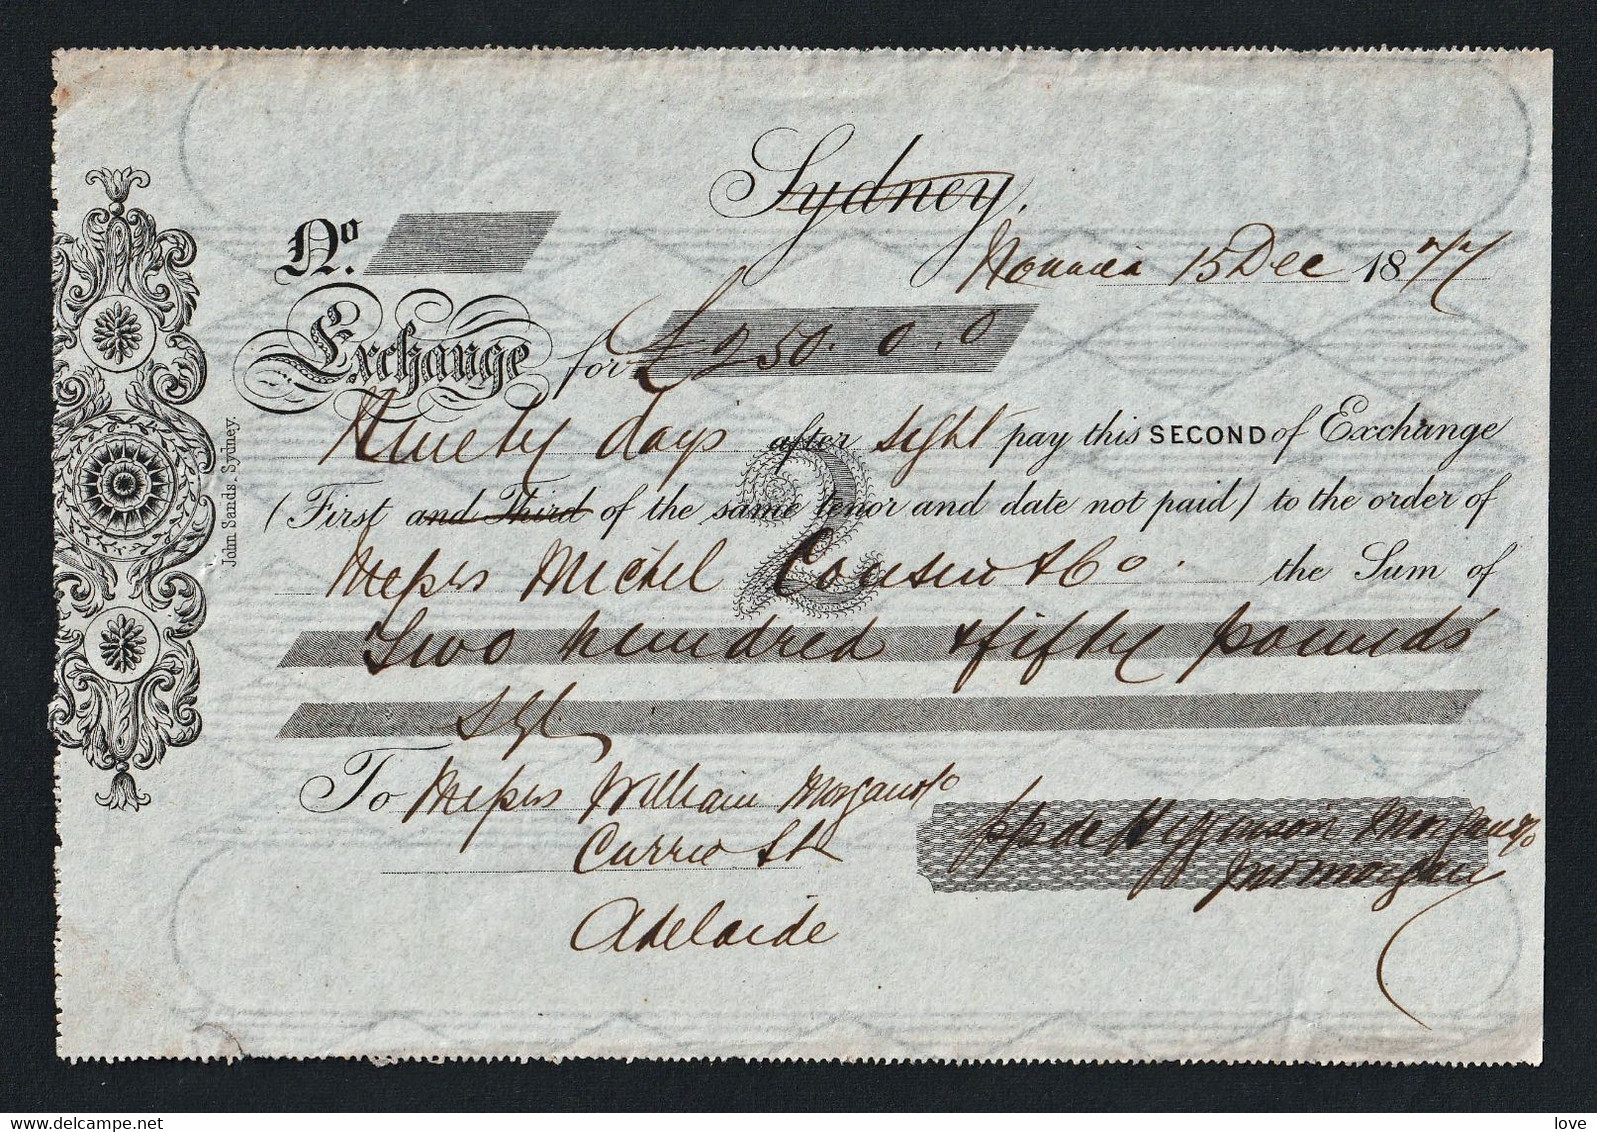 Sydney,
Noumea 15 Dec 1877
No.
Exchange for £250. 0. 0
Ninety days after sight pay this SECOND of Exchange
(First and Third of the same tenor and date not paid) to the order of
Messrs Michel Cousin & Co. the Sum of
Two hundred & fifty pounds
Stg
To Messrs William Morgan & Co
Currie St
Adelaide
pp de Higginson Morgan & Co
Jno Morgan
2
John Sands, Sydney.
www.delcampe.net
love